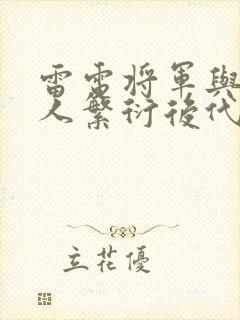 雷雷将軍與
人繁衍後代
立花優